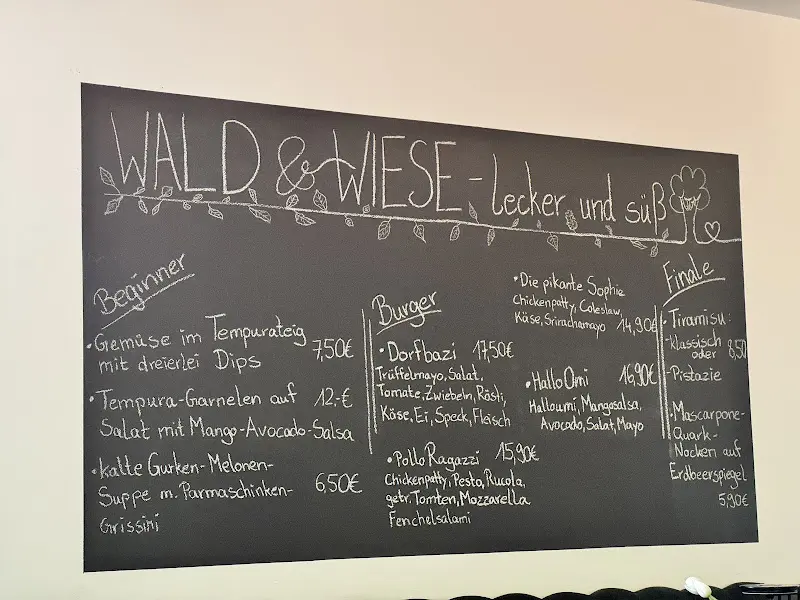 WALD & WIESE - lecker und süß
Beginner
• Gemüse im Tempurateig 7,50€
mit dreierlei Dips
• Tempura-Garnelen auf 12,-€
Salat mit Mango-Avocado-Salsa
• kalte Gurken-Melonen-
Suppe m. Parmaschinken- 6,50€
Grissini
Burger
• Dorfbazi 17,50€
Trüffelmayo, Salat,
Tomate, Zwiebeln, Rösti,
Käse, Ei, Speck, Fleisch
• Pollo Ragazzi 15,90€
Chickenpatty, Pesto, Rucola,
getr. Tomten, Mozzarella
Fenchelsalami
• Die pikante Sophie
Chickenpatty, Coleslaw,
Käse, Srirachamayo 14,90€
• Hallo Omi 16,90€
Halloumi, Mangosalsa,
Avocado, Salat, Mayo
Finale
• Tiramisu:
- klassisch
oder 6,50
- Pistazie
• Mascarpone-
Quark-
Nocken auf
Erdbeerspiegel
5,90€